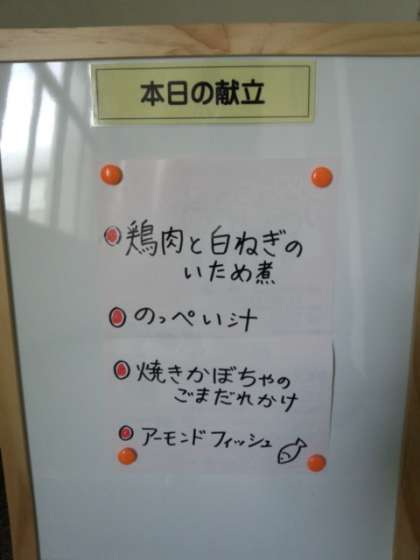 本日の献立
鶏肉と白ねぎの
いため煮
のっぺい汁
焼きかぼちゃの
ごまだれかけ
アーモンドフィッシュ